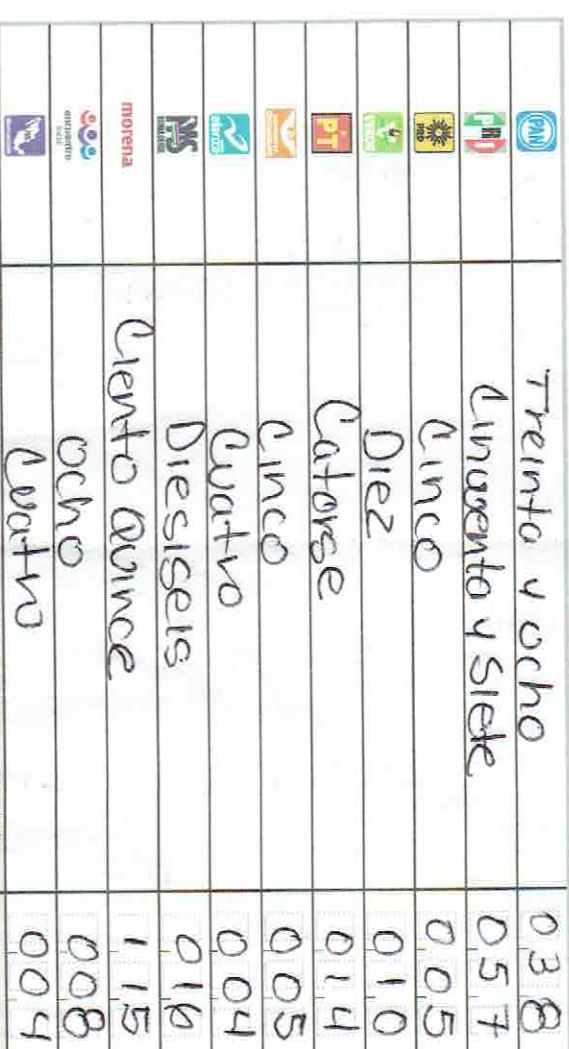 PAN Treinta y ocho 038
PRI Cinquenta y Siete 057
PRD Cinco 005
VERDE Diez 010
PT Catorse 014
Cinco 005
Cuatro 004
PAS Diesiseis 016
morena Ciento Quince 115
encuentro social ocho 008
Cuatro 004